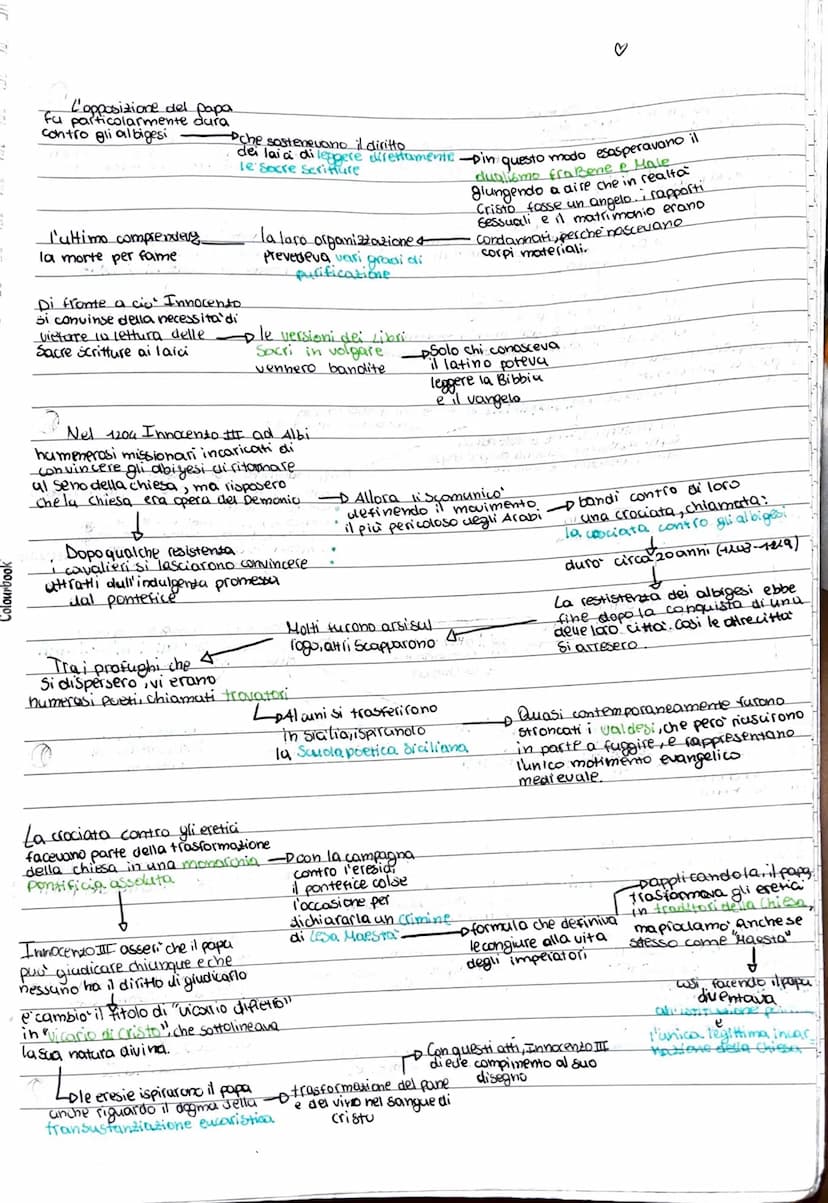 L'opposizione del papa
fu particolarmente dura
contro gli albigesi
che sostenevano il diritto
dei laici di leggere direttamente
le sacre scritture
in questo modo esasperavano il
dualismo fra Bene e Male
giungendo a dire che in realtà
Cristo fosse un angelo. i rapporti
sessuali e il matrimonio erano
condannati, perché nascevano
corpi materiali.
la loro organizzazione
prevedeva vari gradi di
purificazione
l'ultimo
la morte per fame
Di fronte a ciò Innocento
si convinse della necessità di
vietare la lettura delle
Sacre scritture ai laici
le versioni dei Libri
Sacri in volgare
vennero bandite
Solo chi conosceva
il latino poteva
leggere la Bibbia
e il vangelo
Nel 1204 Innocento III ad Albi
humenerosi missionari incaricati di
convincere gli albigesi di ritornare
al seno della chiesa, ma risposero
che la chiesa era opera del Demonio
Allora li scomunicò
definendo il movimento
il più pericoloso degli Arabi
bandì contro di loro
una crociata, chiamata:
la crociata contro gli albigesi
durò circa 20 anni
Dopo qualche resistenza
i cavalieri si lasciarono convincere
attratti dall'indulgenza promessa
dal pontefice
La restistenza dei albigesi ebbe
fine dopo la conquista di una
delle loro città. Così le altre città
si arresero.
Molti furono arsi sul
rogo, altri scapparono
Tra i profughi che
si dispersero, vi erano
numerosi poeti, chiamati trovatori
Alcuni si trasferirono
in Sicilia, ispirando
la Scuola poetica Siciliana
Quasi contemporaneamente furono
stroncati i valdesi, che però riuscirono
in parte a fuggire, e rappresentano
l'unico motimento evangelico
medievale.
La crociata contro gli eretici
facevano parte della trasformazione
della chiesa in una monarchia
pontificia assoluta
con la campagna
contro l'eresia,
il pontefice colse
l'occasione per
dichiararla un crimine
di Lesa Maestà
formula che definiva
le congiure alla vita
degli imperatori
applicandola, il papa
trasformava gli eretici
in traditori della Chiesa,
ma proclamò anche se
stesso come "Maestà"
così, facendo il papa
diventava
e
l'unica legittima incar
nazione della Chiesa
Innocenzo III asserì che il papa
può giudicare chiunque e che
nessuno ha il diritto di giudicarlo
e cambiò il titolo di "vicario di Pietro"
in "vicario di Cristo", che sottolineava
la sua natura divina.
le eresie ispirarono il papa
anche riguardo il dogma della
transustanziazione eucaristica
trasformazione del pane
e del vino nel sangue di
Cristo
Con questi atti, Innocenzo III
diede compimento al suo
disegno
Colourbook